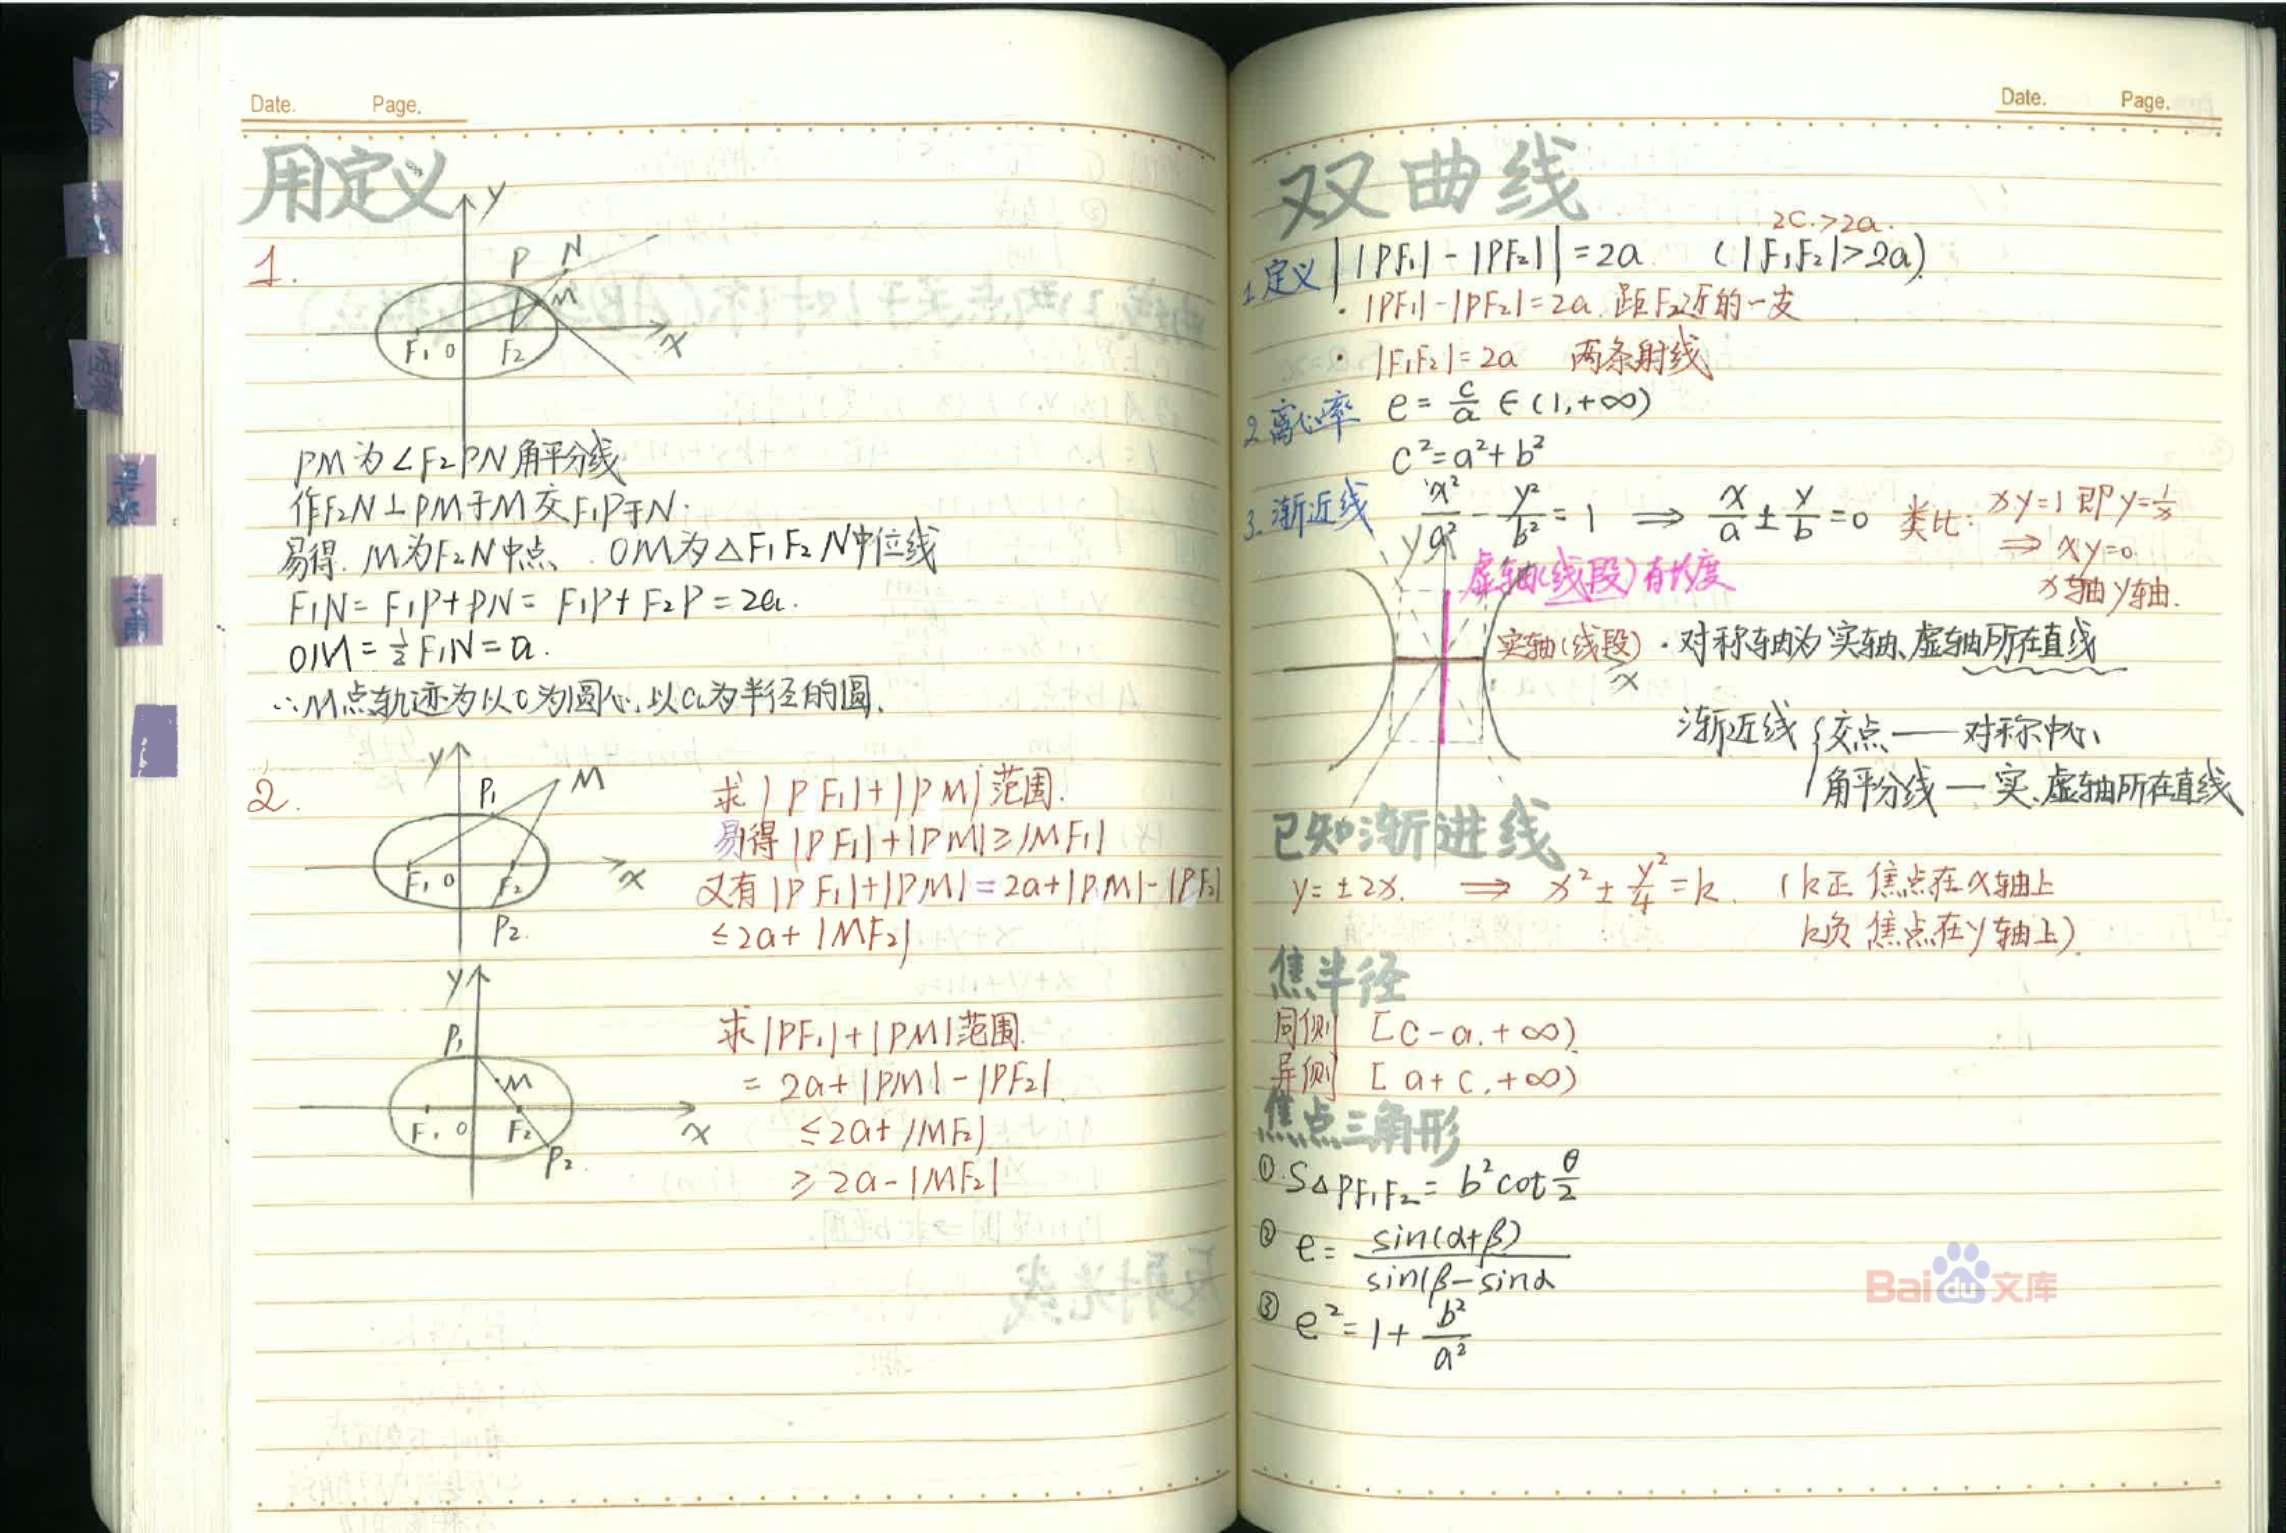 Date. Page.
用定义
1.
y
P N
M
F₁ O F₂ x
PM为∠F₂PN角平分线
作F₂N⊥PM于M交F₁P于N.
易得.M为F₂N中点. OM为△F₁F₂N中位线
F₁N=F₁P+PN=F₁P+F₂P=2a.
OM=½F₁N=a.
∴M点轨迹为以O为圆心,以a为半径的圆.
2.
y
P₁ M
F₁ O F₂ x
P₂
求|PF₁|+|PM|范围.
易得|PF₁|+|PM|≥|MF₁|
又有|PF₁|+|PM|=2a+|PM|-|PF₂|
≤2a+|MF₂|
y
P₁
M
F₁ O F₂ x
P₂
求|PF₁|+|PM|范围.
=2a+|PM|-|PF₂|
≤2a+|MF₂|
≥2a-|MF₂|
Date. Page.
双曲线
2C>2a.
1.定义 ||PF₁|-|PF₂||=2a (|F₁F₂|>2a).
·|PF₁|-|PF₂|=2a.距F₂近的一支
·|F₁F₂|=2a 两条射线
2.离心率 e=c/a∈(1,+∞)
c²=a²+b²
3.渐近线 x²/a²-y²/b²=1 ⇒ x/a±y/b=0 类比: xy=1即y=1/x
⇒xy=0.
x轴y轴.
y
虚轴(线段)有长度
实轴(线段)
x
·对称轴为实轴、虚轴所在直线
渐近线{交点——对称中心
角平分线—实、虚轴所在直线
已知渐进线
y=±2x. ⇒ x²±y²/4=k. (k正 焦点在x轴上
k负 焦点在y轴上).
焦半径
同侧 [c-a,+∞)
异侧 [a+c,+∞)
焦点三角形
①.S△PF₁F₂=b²cotθ/2
② e=sin(α+β)/sin(β-sinα
③ e²=1+b²/a²
Baidu文库